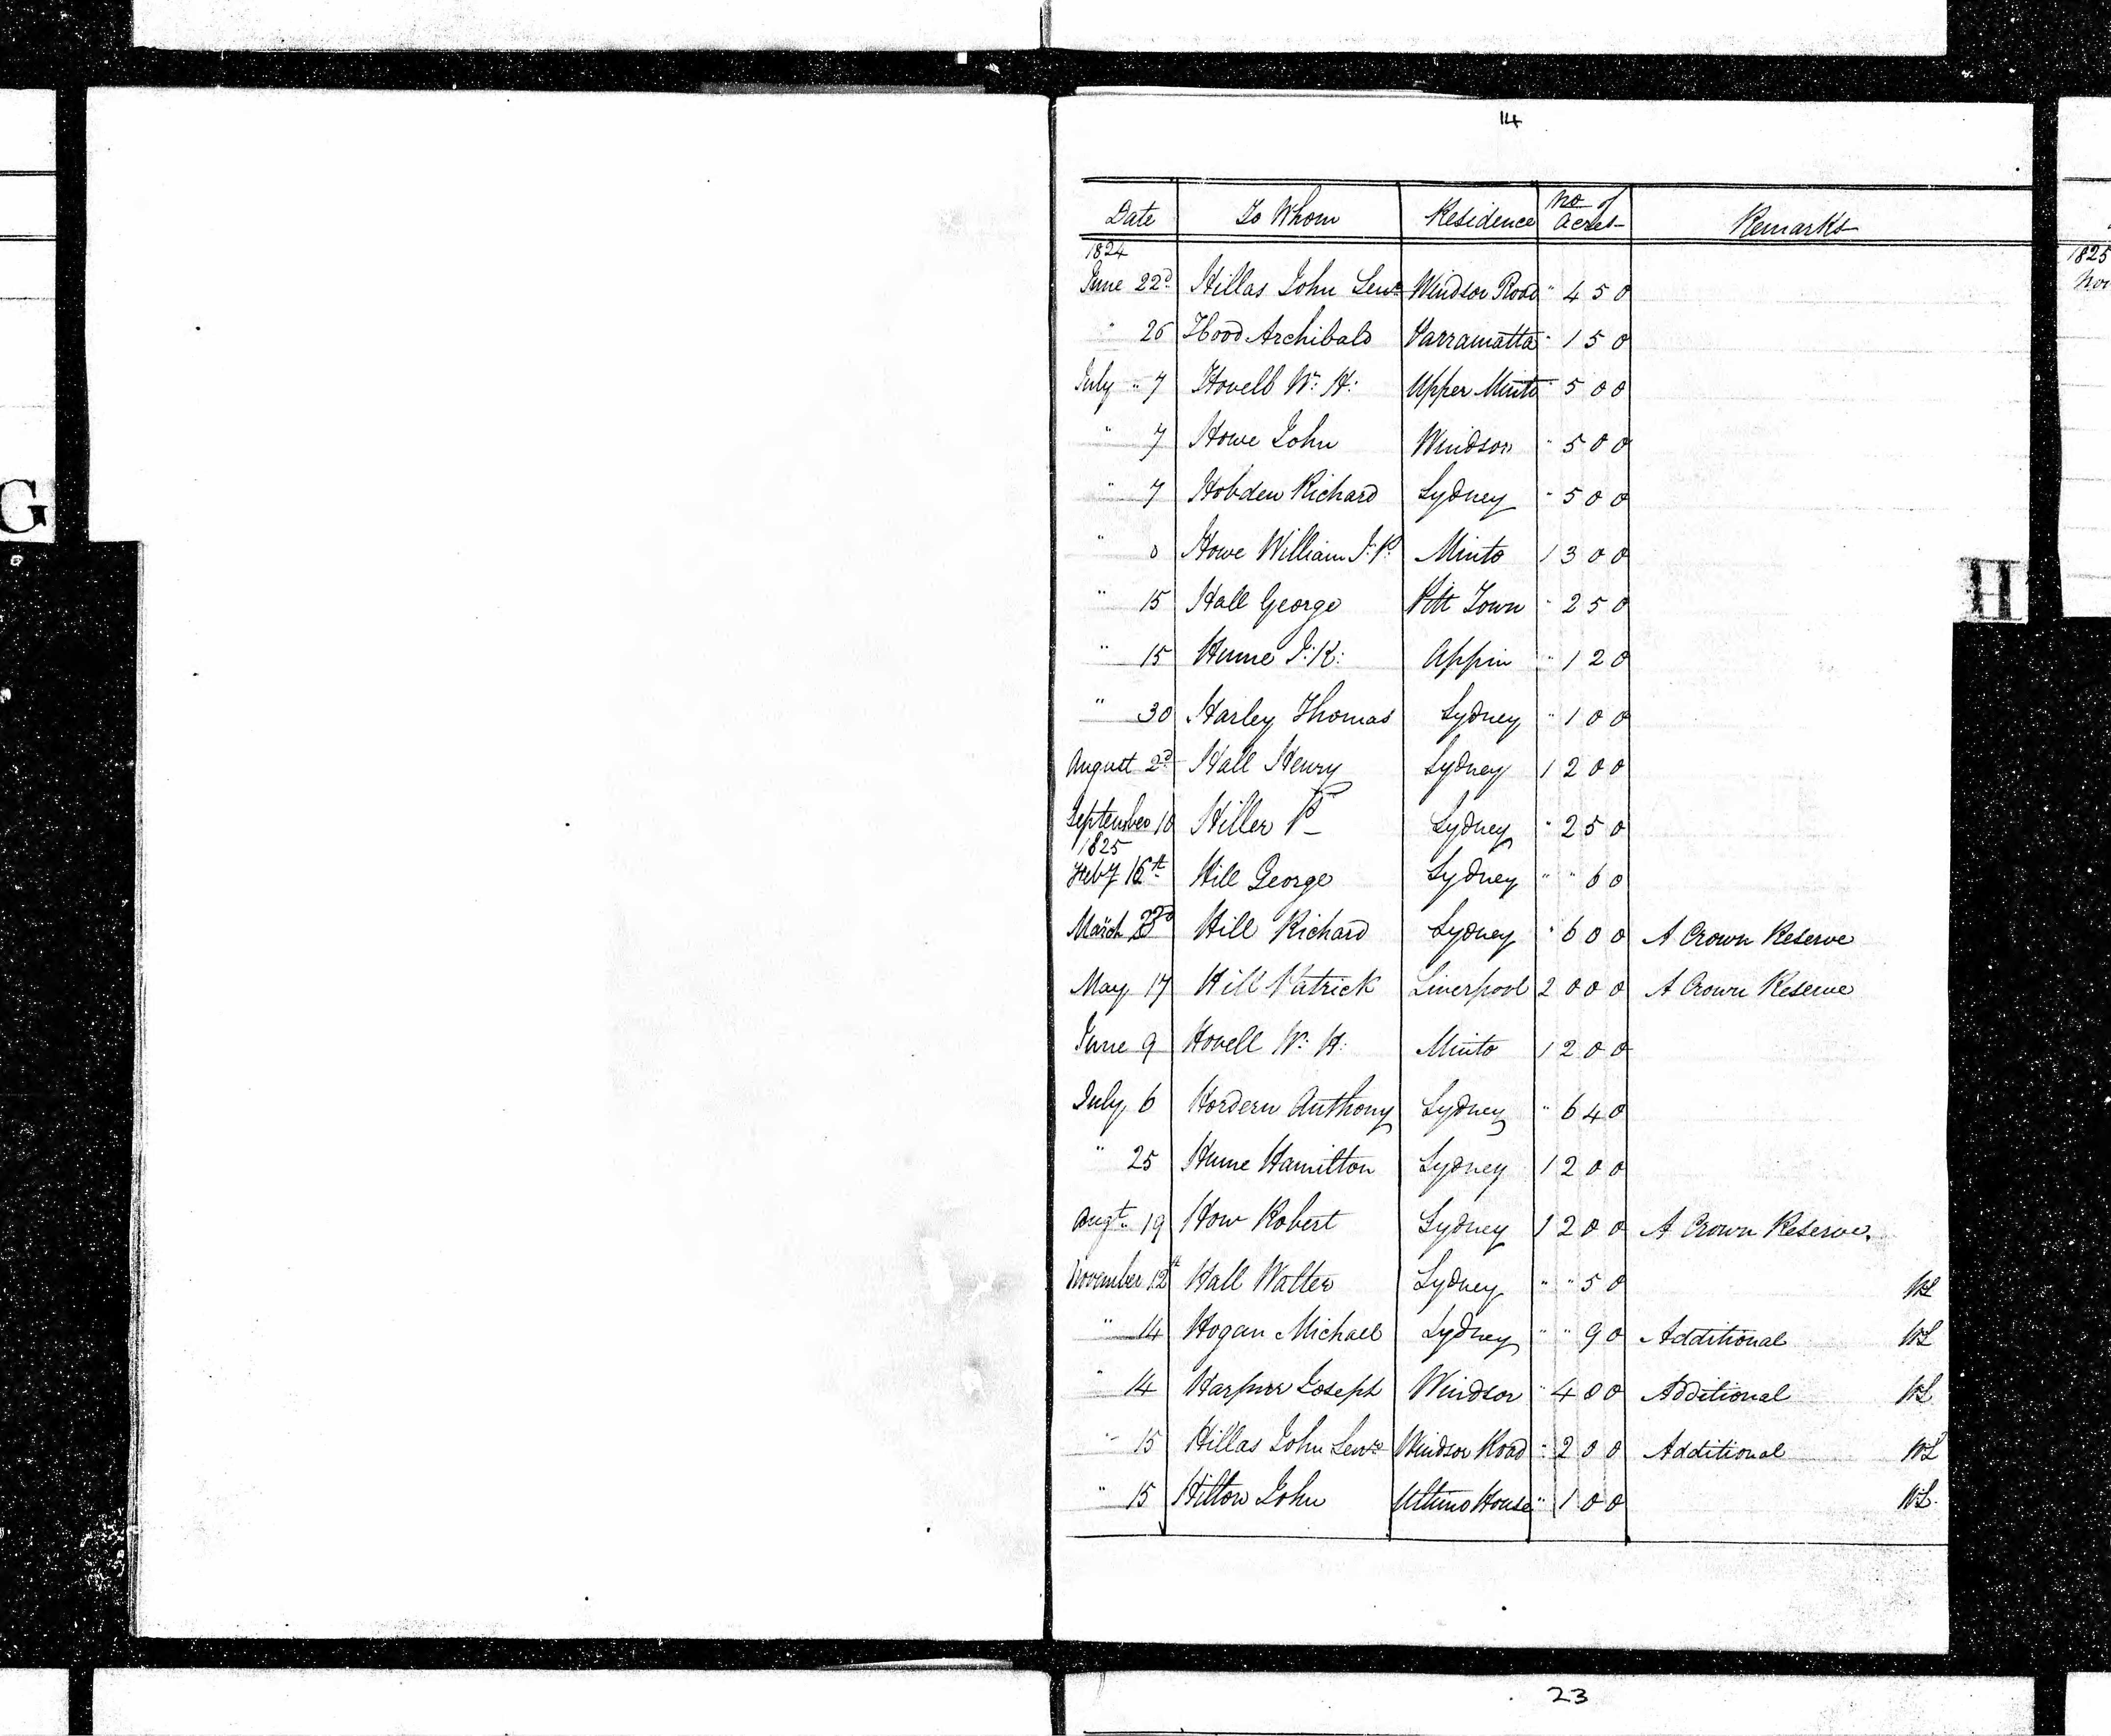 14
Date To Whom Residence No of Acres Remarks
1824
June 22d Hillas John Lewis Windsor Road " 450
" 26 Hood Archibald Parramatta " 150
July " 7 Hovell Wm H: Upper Minto " 500
" 7 Howe John Windsor " 500
" 7 Hobden Richard Sydney " 500
" Howe William J.P. Minto 1300
" 15 Hall George Pitt Town " 250
" 15 Hume J:K: Appin " 120
" 30 Harley Thomas Sydney " 100
August 2d Hall Henry Sydney 1200
September 10 Hiller P Sydney " 250
1825
Feby 16th Hill George Sydney " " 60
March Hill Richard Sydney " 600 A Crown Reserve
May 17 Hill Patrick Liverpool 2000 A Crown Reserve
June 9 Hovell Wm H: Minto 1200
July 6 Hordern Anthony Sydney " 640
" 25 Hume Hamilton Sydney 1200
Augt 19 How Robert Sydney 1200 A Crown Reserve.
November 12th Hall Walter Sydney " " 50
" 14 Hogan Michael Sydney " " 90 Additional
" 14 Harpur Joseph Windsor " 400 Additional
" 15 Hillas John Lews Windsor Road " 200 Additional
" 15 Hilton John Ultimo House " 100
23
G
H
1825
Nov